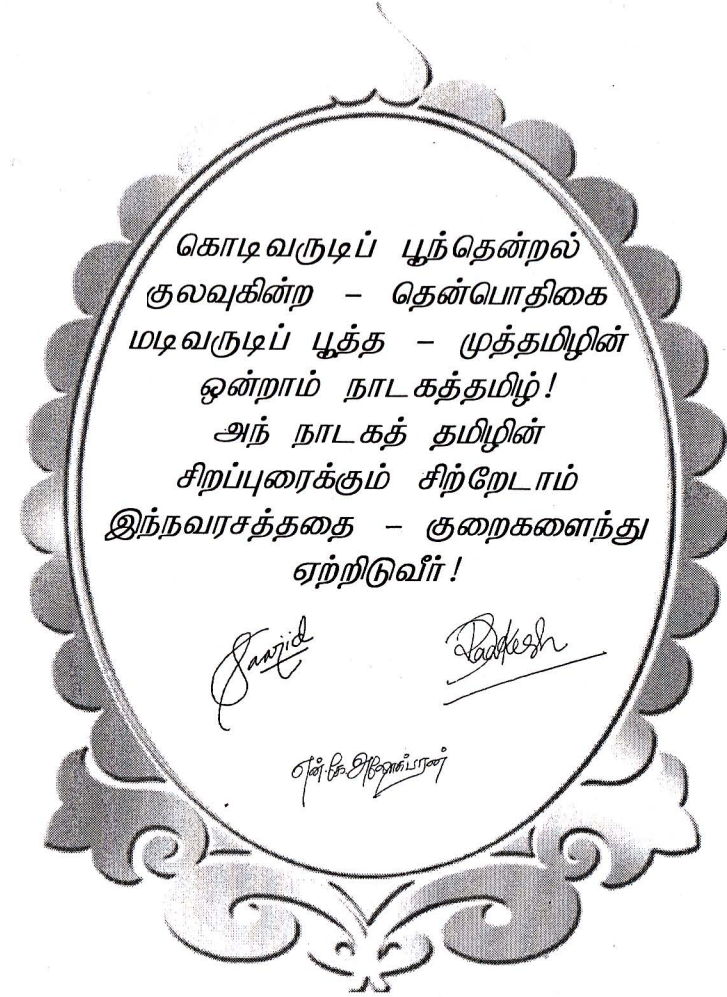 கொடிவருடிப் பூந்தென்றல்
குலவுகின்ற – தென்பொதிகை
மடிவருடிப் பூத்த – முத்தமிழின்
ஒன்றாம் நாடகத்தமிழ்!
அந் நாடகத் தமிழின்
சிறப்புரைக்கும் சிற்றேடாம்
இந்நவரசத்ததை – குறைகளைந்து
ஏற்றிடுவீர்!
Saanjid
Raakesh
என்.கே.அஷோக்பரன்